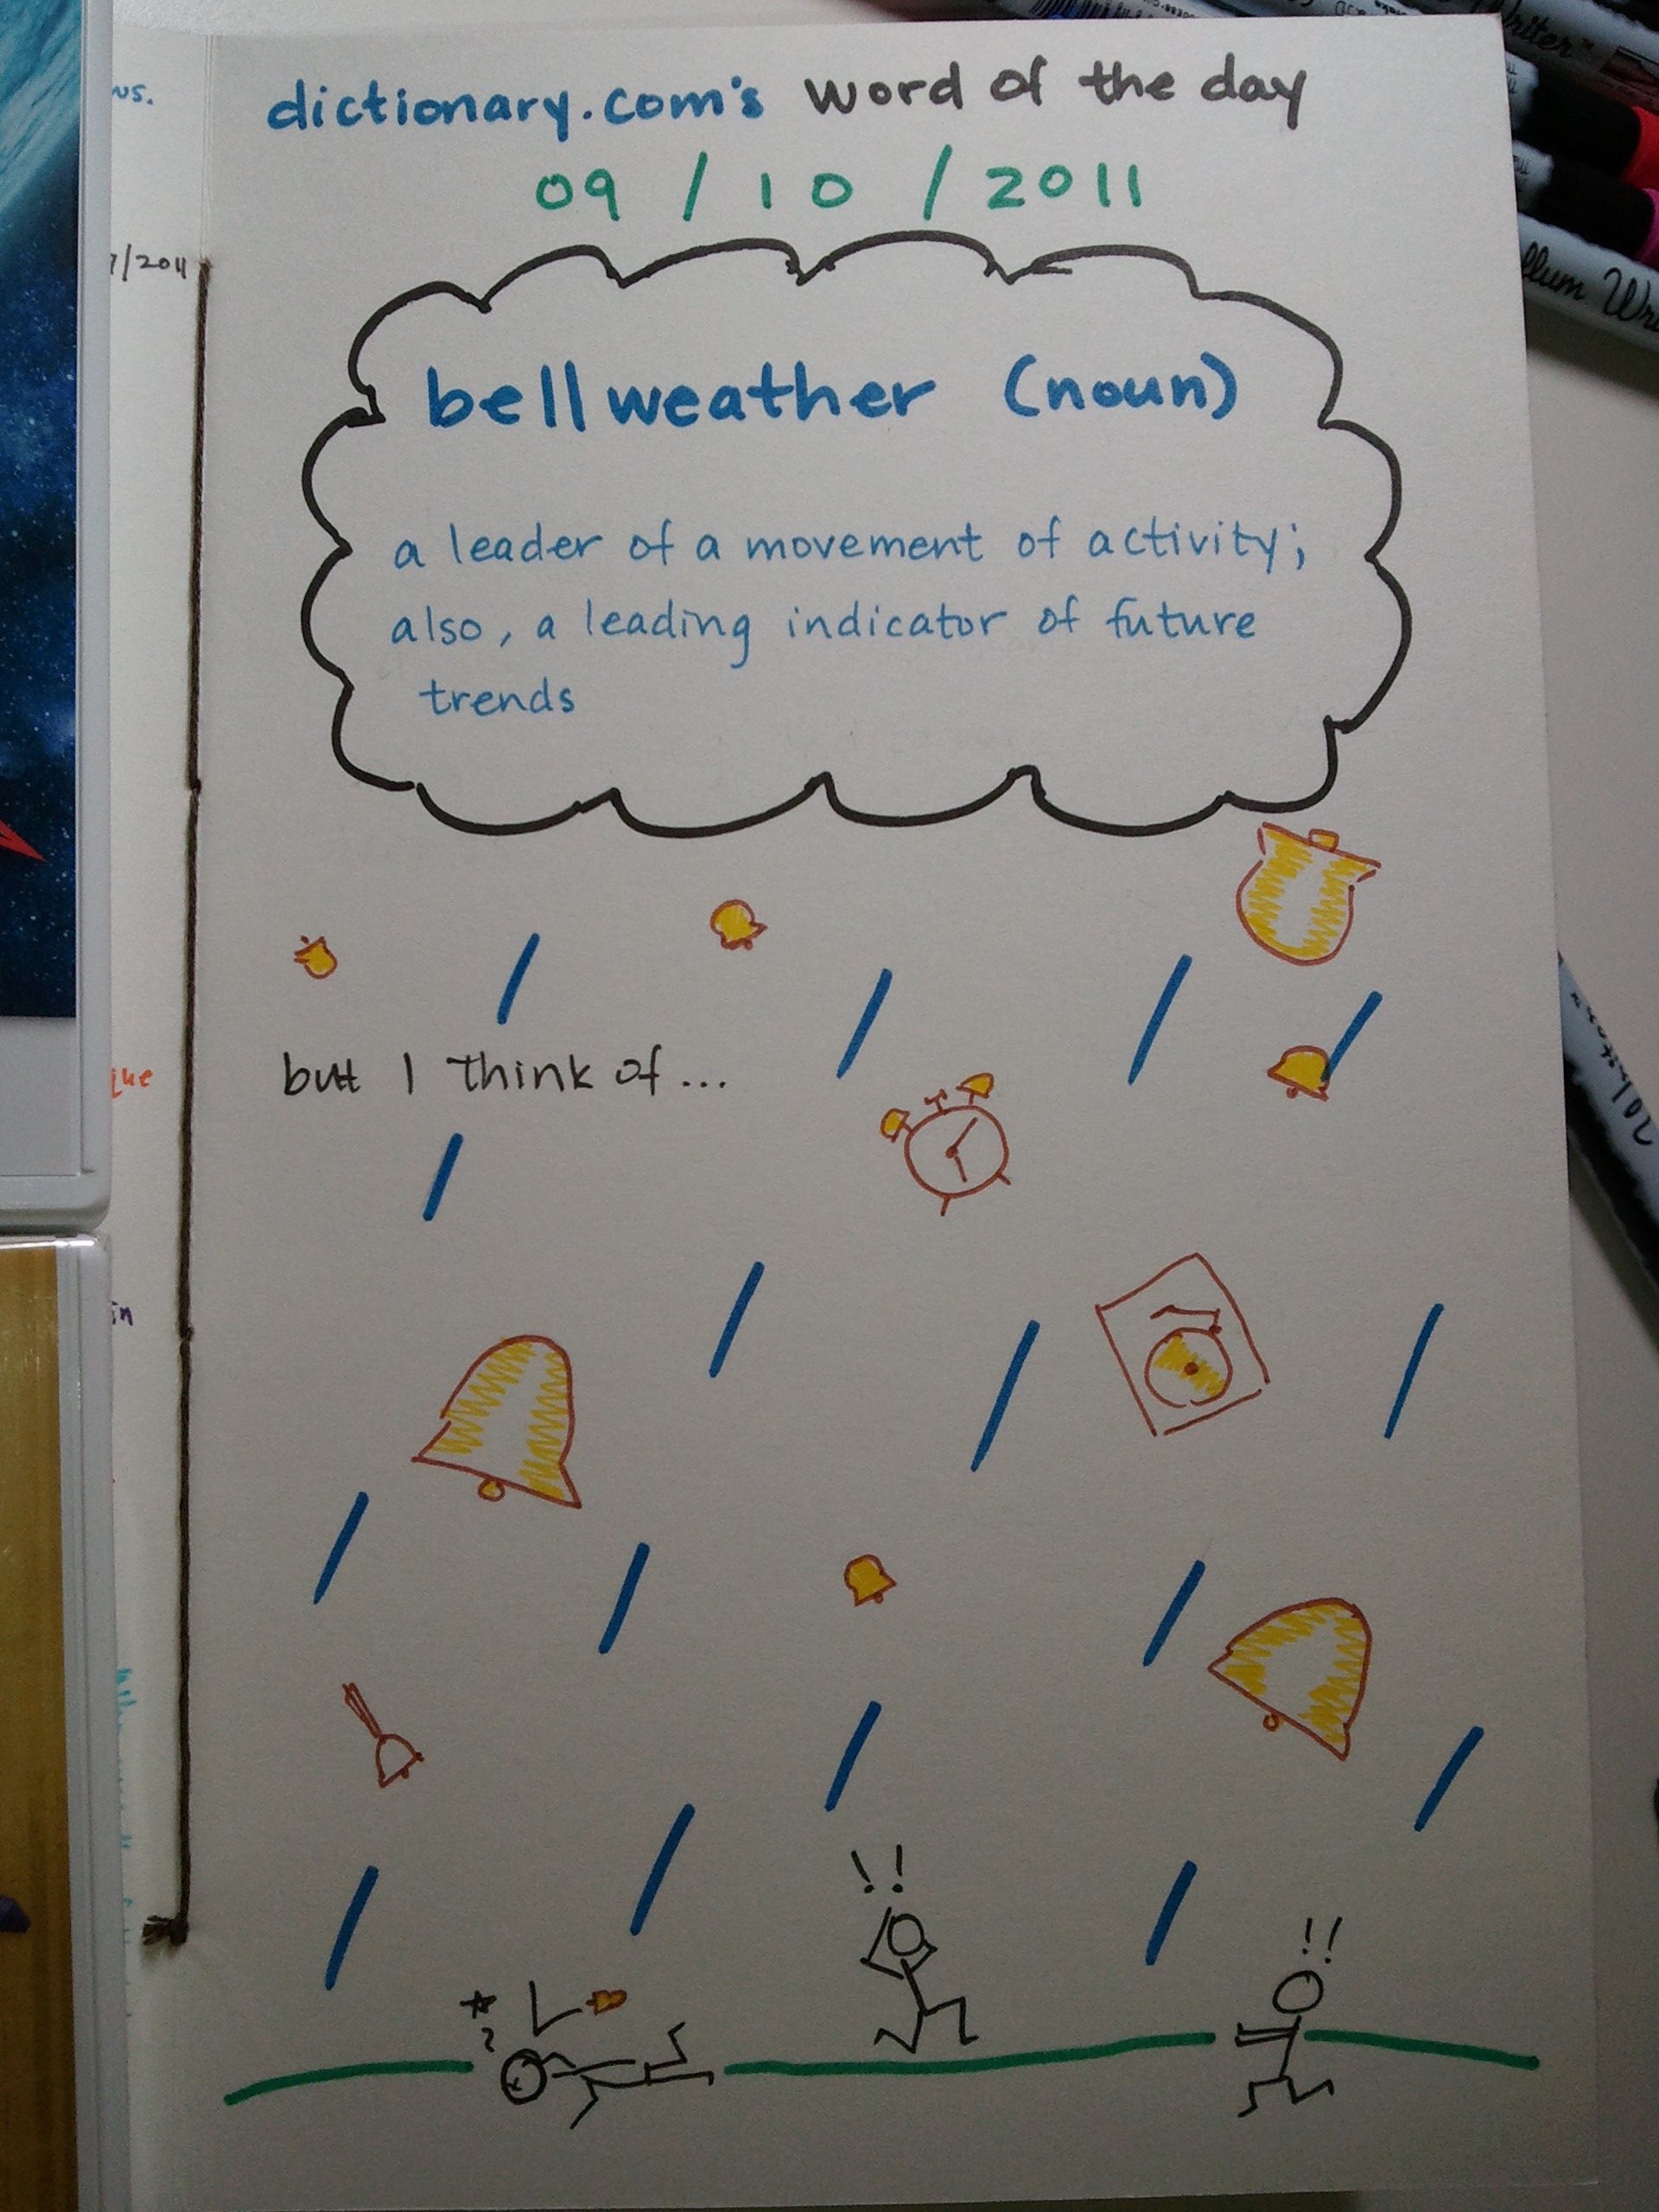 dictionary.com's word of the day
09 / 10 / 2011
bellweather (noun)
a leader of a movement of activity;
also, a leading indicator of future
trends
but I think of...
!!
!!
?
us.
7/2011
in
Writer
llum Wri